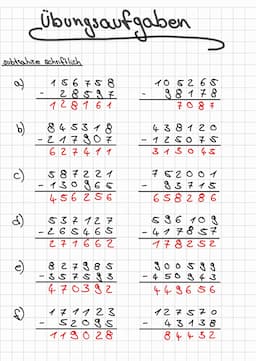 Übungsaufgaben
subtrahiere schriftlich
a) 156758 105265
- 28597 - 98178
128161 7087
b) 845318 438120
- 217907 - 125075
627411 313045
c) 587221 752001
- 130965 - 93715
456256 658286
d) 537127 596109
- 265465 - 417857
271662 178252
e) 827985 900599
- 357593 - 450943
470392 449656
f) 171123 127570
- 52095 - 43138
119028 84432